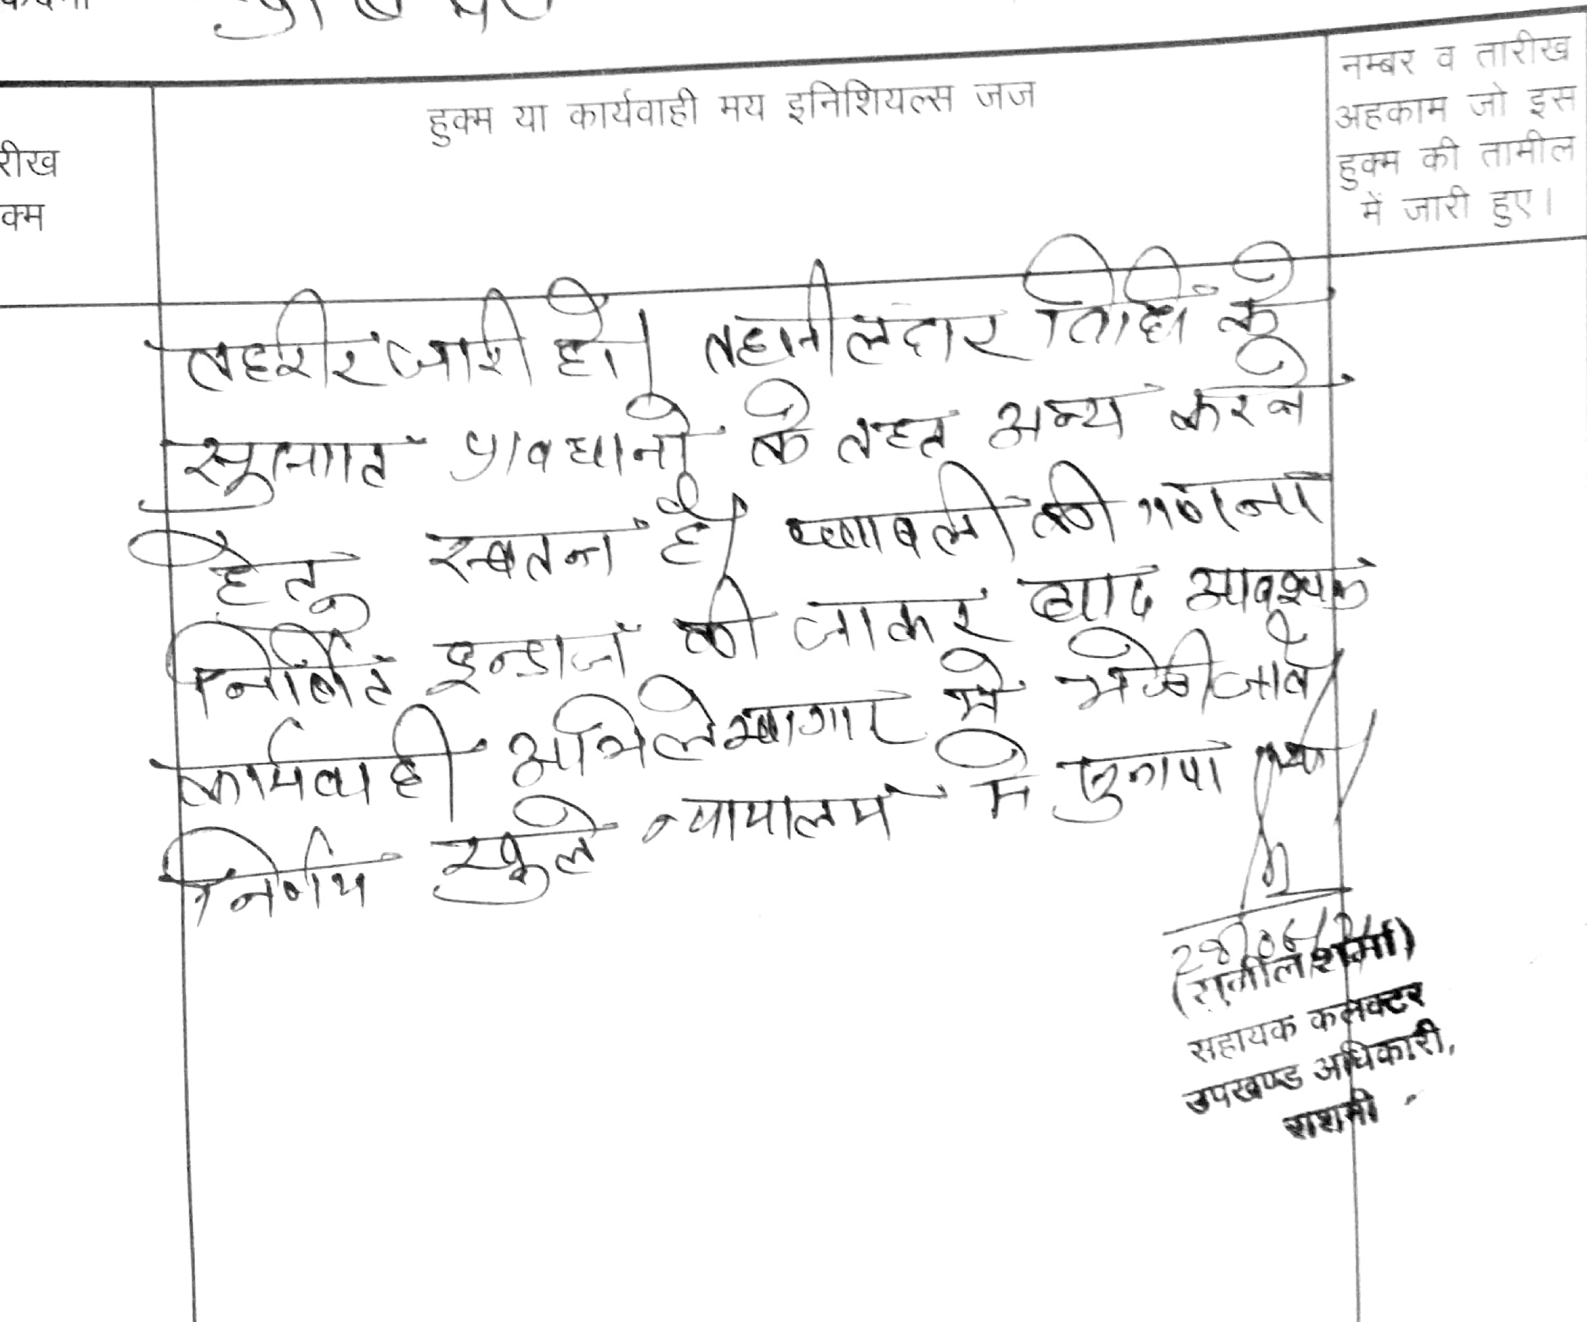 हुक्म या कार्यवाही मय इनिशियल्स जज
नम्बर व तारीख
अहकाम जो इस
हुक्म की तामील
में जारी हुए।
रीख
क्म
तहरीर जारी हो। तहसीलदार को
प्रावधानों के तहत अन्य करने
हेतु स्वतन्त्र है। पत्रावली की गणना
इन्द्राज की जाकर बाद आवश्यक
कार्यवाही अभिलेखागार में भेजी जावे।
निर्णय खुले न्यायालय में सुनाया गया
(सुनील शर्मा)
सहायक कलक्टर
उपखण्ड अधिकारी,
राशमी